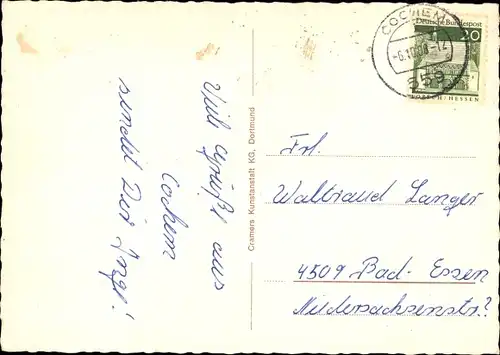 Viele Grüße aus
Cochem
sendet Dir Inge!
Cramers Kunstanstalt KG, Dortmund
COCHEM
559
Deutsche Bundespost
20
LORSCH/HESSEN
Frl.
Waltraud Langer
4509 Bad-Essen
Niedersachsenstr.?